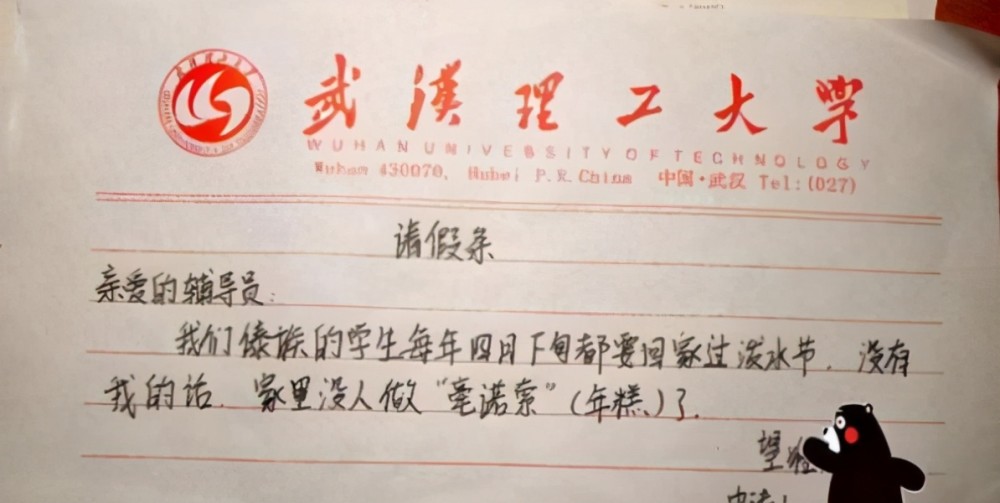 武漢理工大學
WUHAN UNIVERSITY OF TECHNOLOGY
Wuhan 430070, Hubei P.R.China 中国·武汉 Tel:(027)
请假条
亲爱的辅导员:
我们傣族的学生每年四月下旬都要回家过泼水节,没有
我的话,家里没人做“毫诺索”(年糕)了.
望
申请